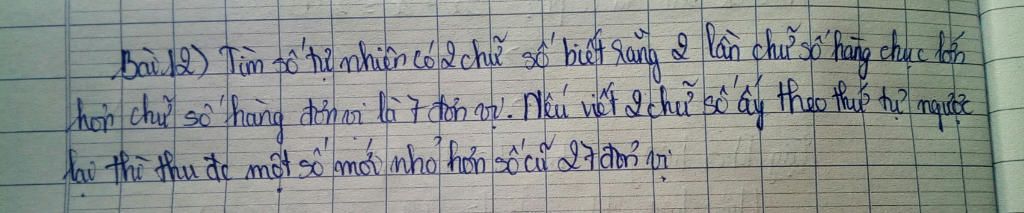 Bài 12) Tìm số tự nhiên có 2 chữ số biết rằng 2 lần chữ số hàng chục lớn
hơn chữ số hàng đơn vị là 7 đơn vị. Nếu viết 2 chữ số ấy theo thứ tự ngược
lại thì thu đc một số mới nhỏ hơn số cũ 27 đơn vị